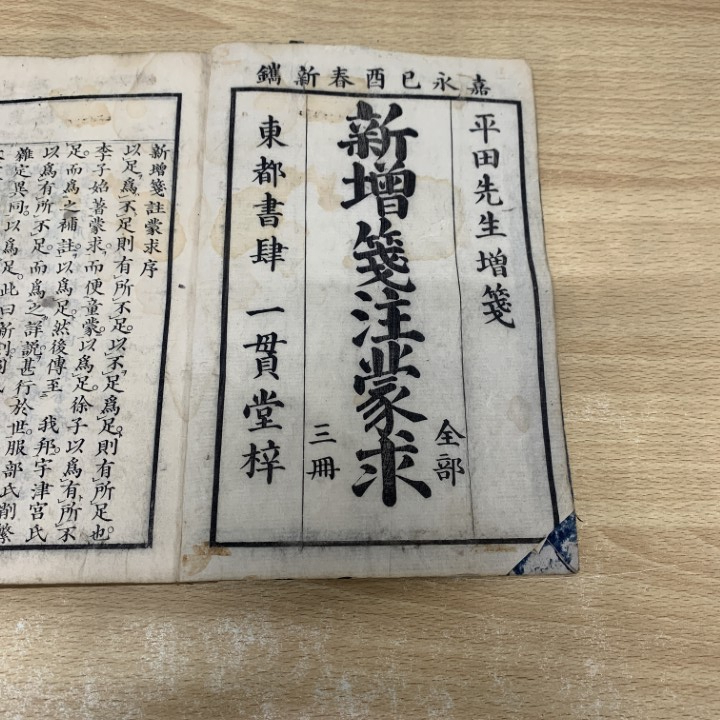 嘉永己酉春新鐫
平田先生增箋
新增箋注蒙求
全部
三冊
東都書肆 一貫堂梓
新增箋註蒙求序
以足爲不足則有所不足以不足爲足則有所足也
李子始著蒙求而便童蒙以爲足徐子以爲有所不
足而爲之補註以爲足然後傳至 我邦宇津宮氏
以爲有所不足而爲之詳說甚行於世服部氏削繁
雜定異同以爲足此曰